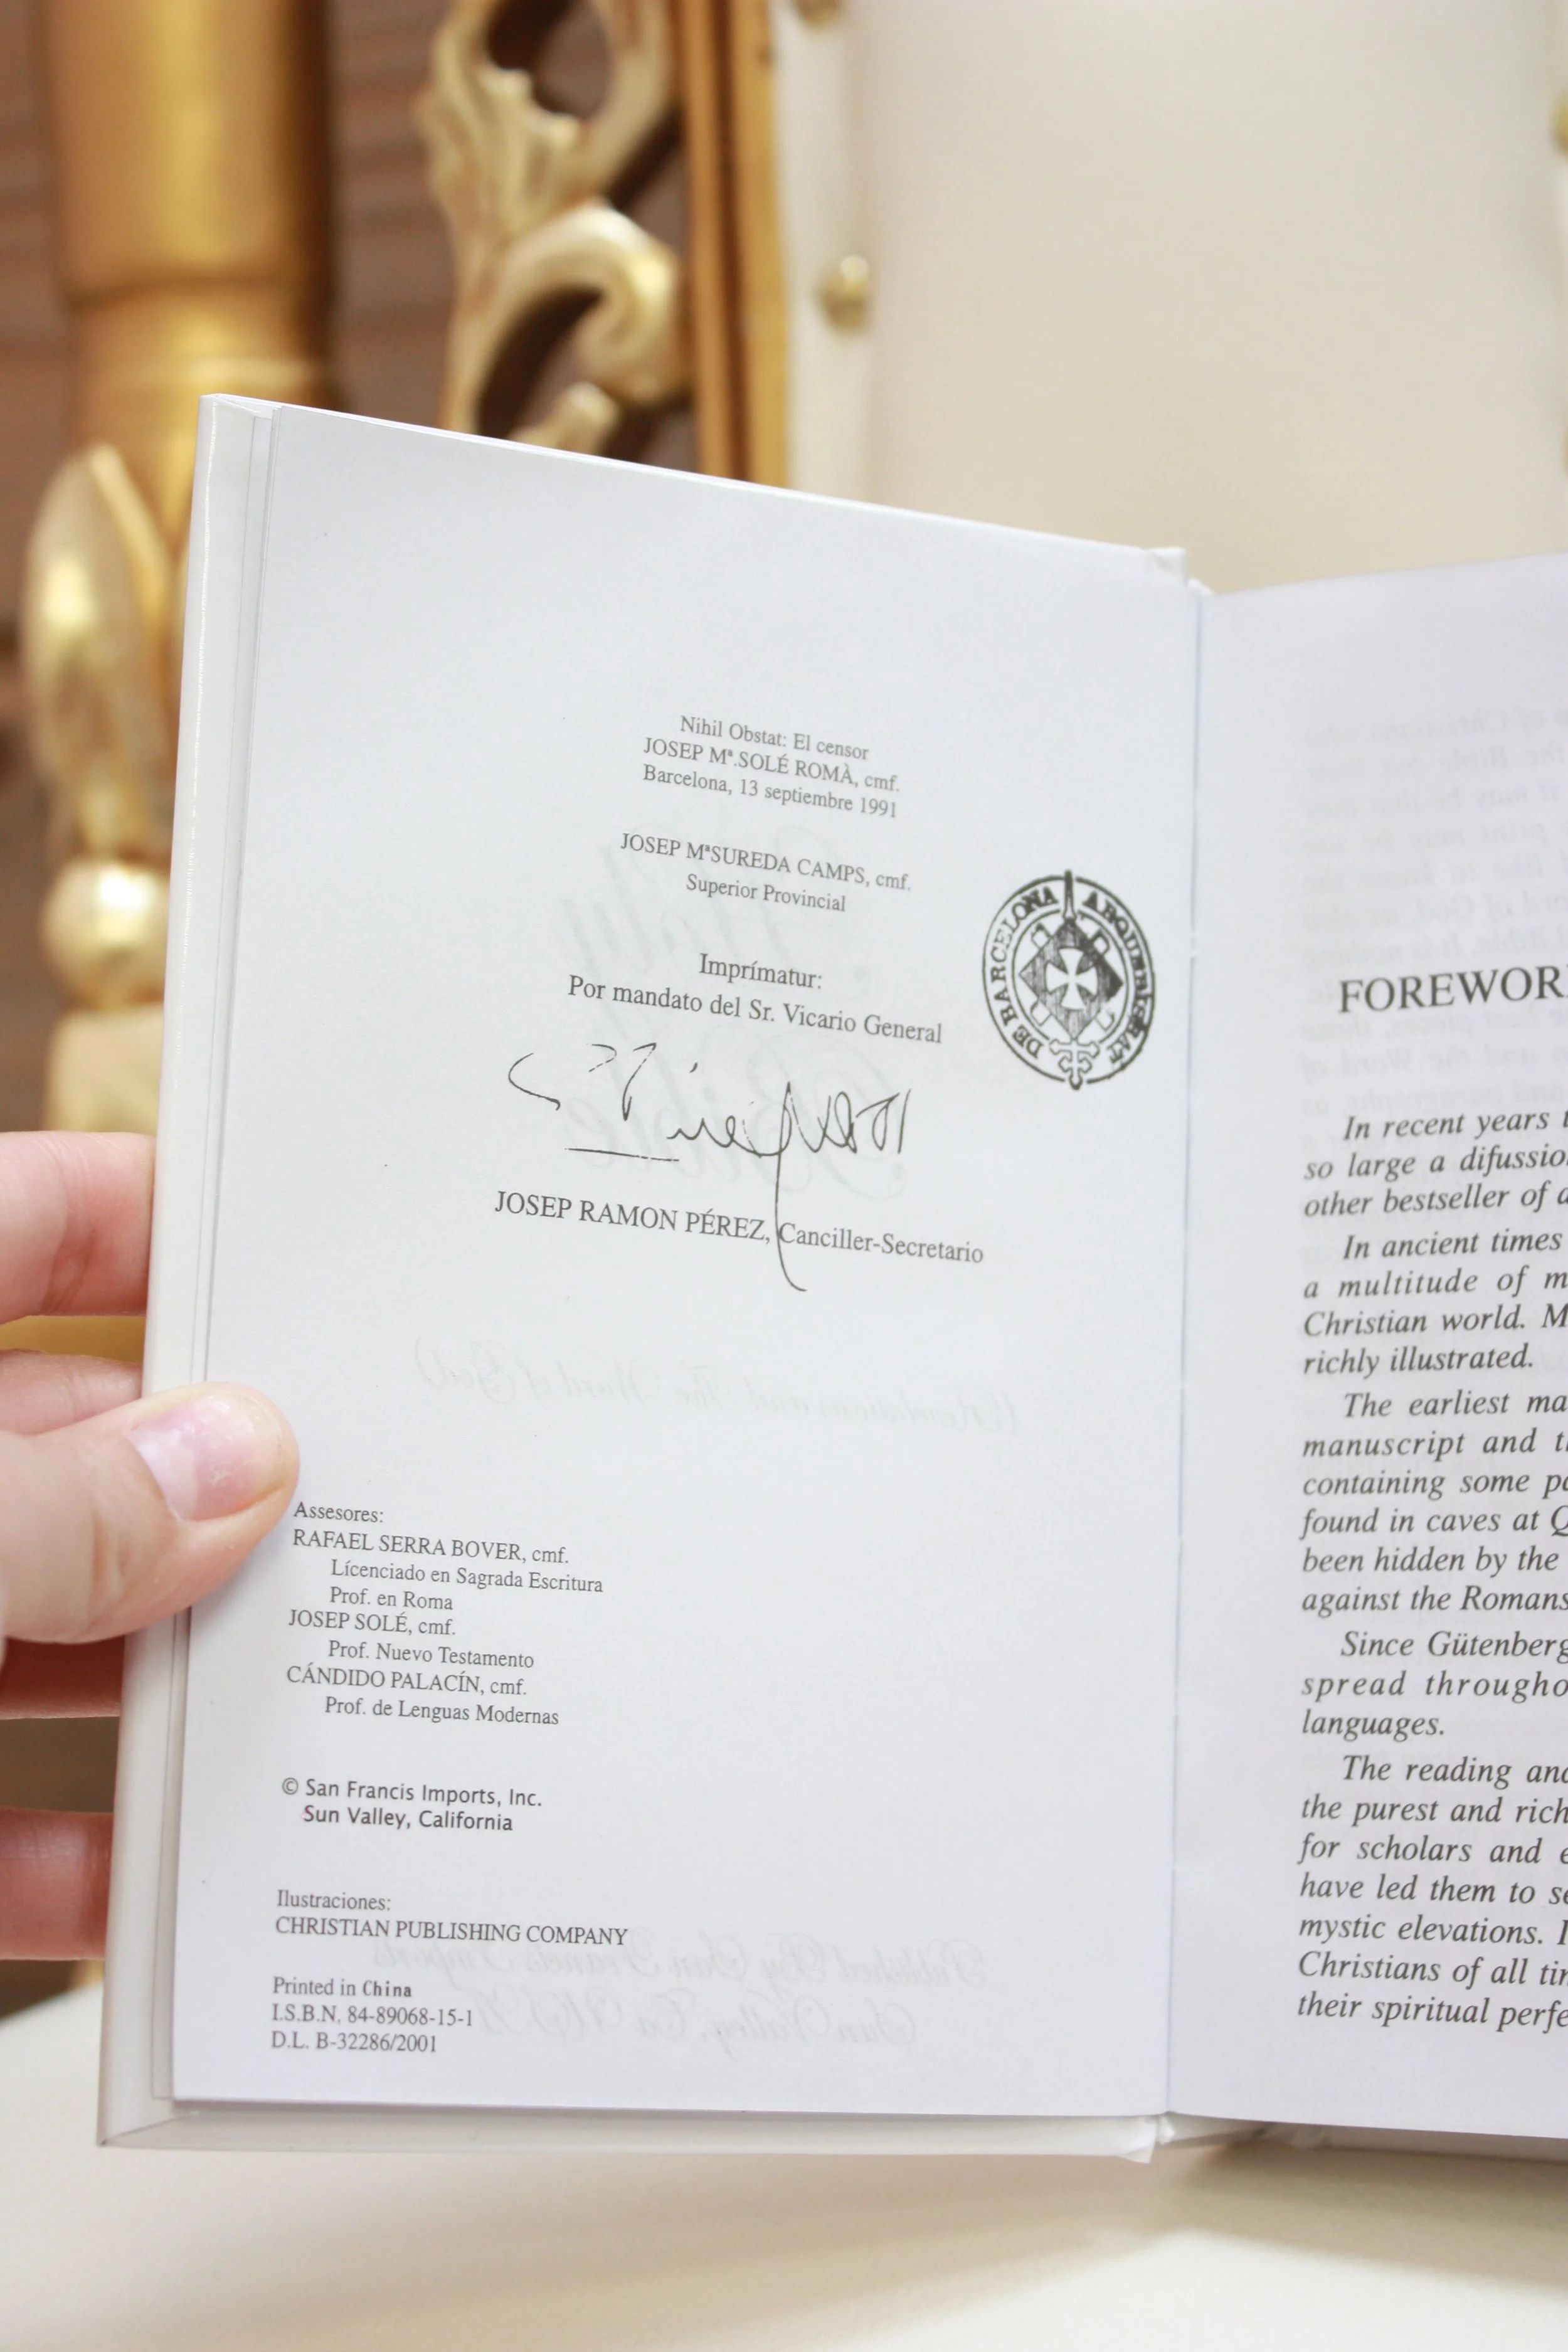 Nihil Obstat: El censor
JOSEP Mª.SOLÉ ROMÀ, cmf.
Barcelona, 13 septiembre 1991
JOSEP MªSUREDA CAMPS, cmf.
Superior Provincial
Imprímatur:
Por mandato del Sr. Vicario General
ARQUEBISBAT DE BARCELONA
JOSEP RAMON PÉREZ, Canciller-Secretario
Assesores:
RAFAEL SERRA BOVER, cmf.
Lícenciado en Sagrada Escritura
Prof. en Roma
JOSEP SOLÉ, cmf.
Prof. Nuevo Testamento
CÁNDIDO PALACÍN, cmf.
Prof. de Lenguas Modernas
© San Francis Imports, Inc.
Sun Valley, California
Ilustraciones:
CHRISTIAN PUBLISHING COMPANY
Printed in China
I.S.B.N. 84-89068-15-1
D.L. B-32286/2001
FOREWOR
In recent years
so large a difussio
other bestseller of
In ancient times
a multitude of m
Christian world. M
richly illustrated.
The earliest ma
manuscript and
containing some pa
found in caves at Q
been hidden by the
against the Romans
Since Gütenberg
spread througho
languages.
The reading and
the purest and rich
for scholars and e
have led them to se
mystic elevations. I
Christians of all tim
their spiritual perfe